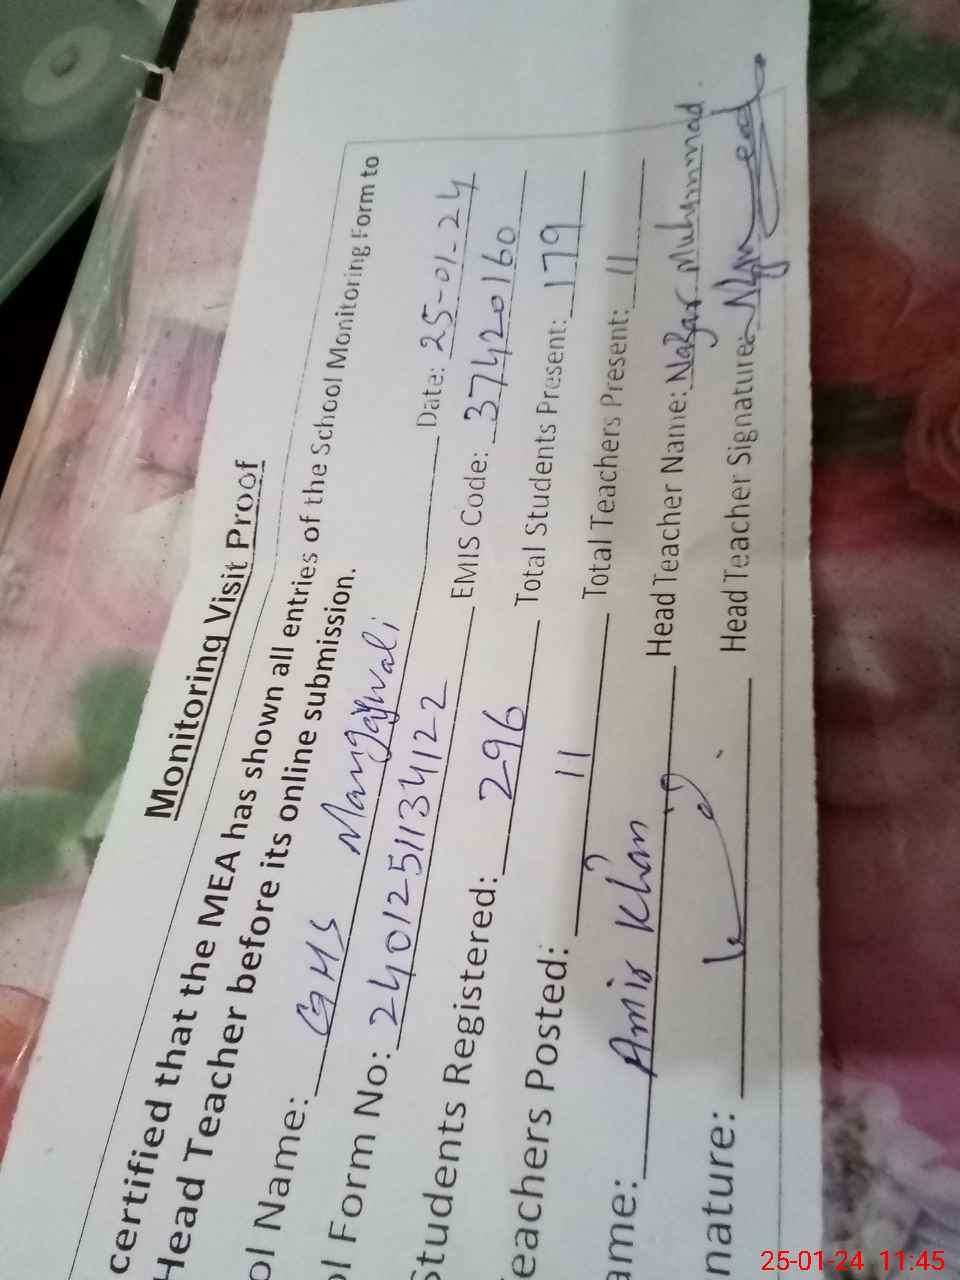 Monitoring Visit Proof
certified that the MEA has shown all entries of the School Monitoring Form to
Head Teacher before its online submission.
ol Name: GHS Date: 25-01-24
ol Form No: 2401251134122 EMIS Code: 37420160
Students Registered: 296 Total Students Present: 179
Teachers Posted: 11 Total Teachers Present: 11
ame: Amir Khan Head Teacher Name: Nazar Muhammad
nature: Head Teacher Signature:
25-01-24 11:45